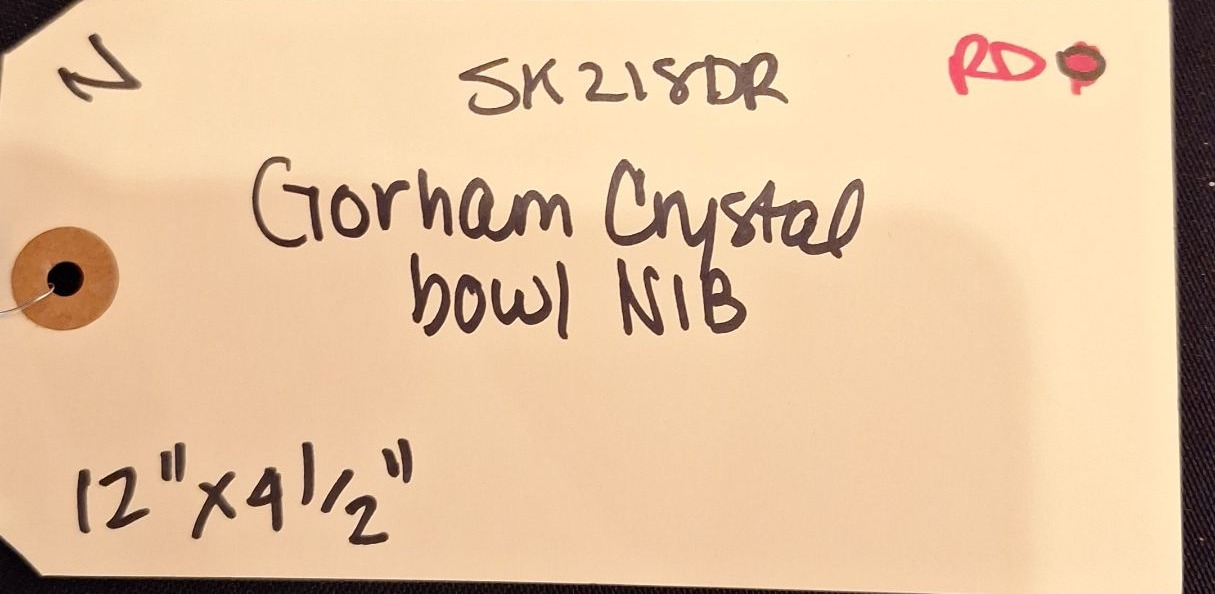 N
SK218DR
RD
Gorham Crystal
bowl NIB
12" x 4 1/2"